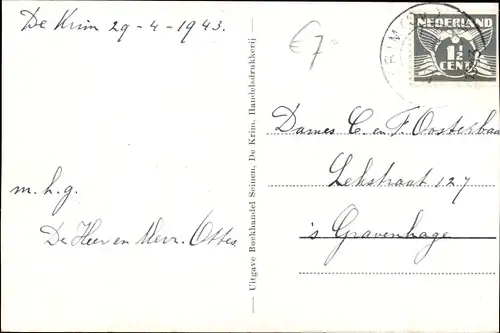 De Krim 29-4-1943.
€7
NEDERLAND
1½
CENT
Dames C. en F. Oosterbaan
Lekstraat 127
's Gravenhage
m.h.g.
De Heer en Mevr. Ottes
Uitgave Boekhandel Seinen, De Krim, Handelsdrukkerij